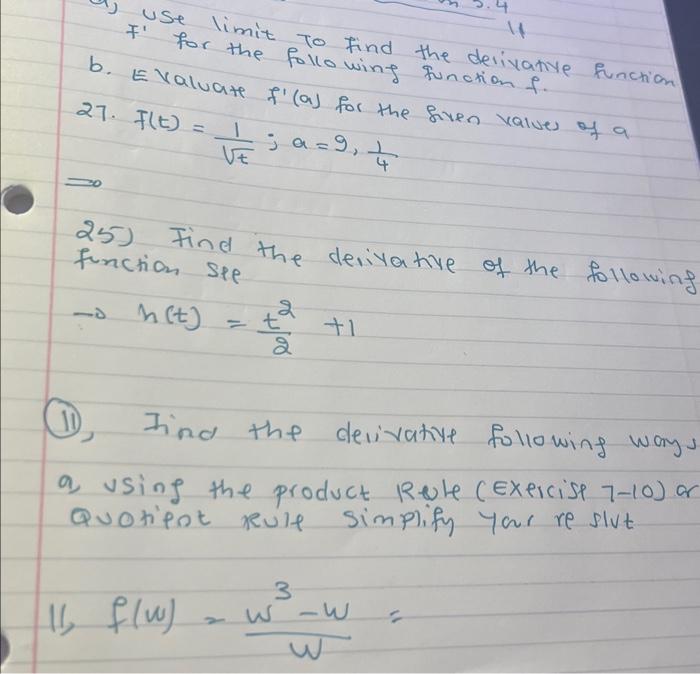 3.4
11
a) use limit To find the derivative function
F' for the following function f.
b. Evaluate f'(a) for the given values of a
27. f(t) = 1/√t ; a = 9, 1/4
⇒
25) Find the derivative of the following
function see
→ h(t) = t²/2 +1
11, Find the derivative following ways
a using the product Rule (Exercise 7-10) or
Quotient rule simplify your re slut
11, f(w) = w³-w/w =